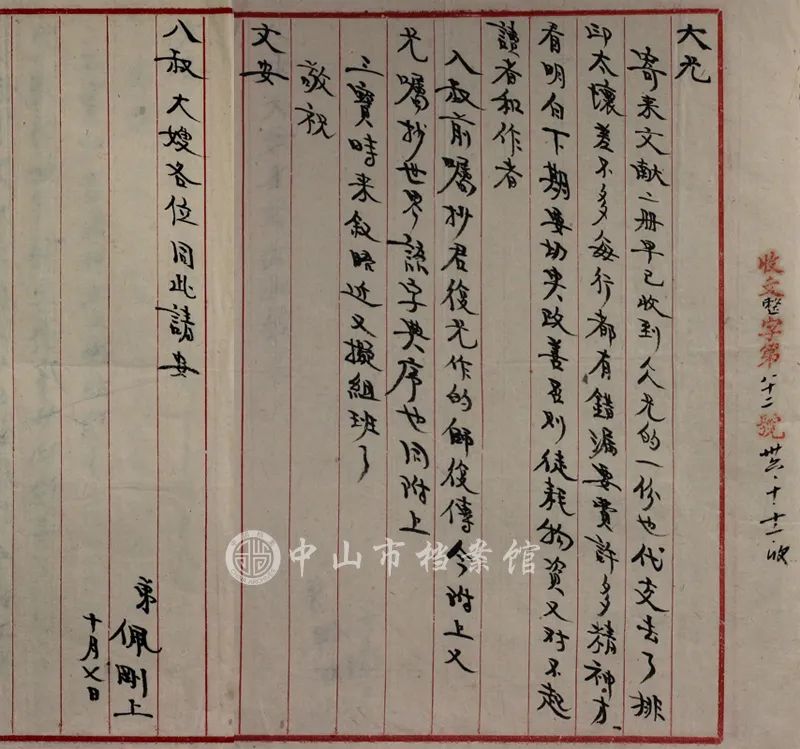 收文整字第八十二號 卅六·十·十二·收
大兄
寄来文献二册早已收到久兄的一份也代支去了排
印太壞差不多每行都有錯漏要費許多精神方
看明白下期要切实改善否则徒耗物資又对不起
讀者和作者
八叔前囑抄君復兄作的師復傳今附上又
兄囑抄世界語字典序也同附上
三寶時来叙晤近又擬組班了
敬祝
文安
八叔 大嫂各位同此請安
弟佩剛上
十月七日
中山市档案馆